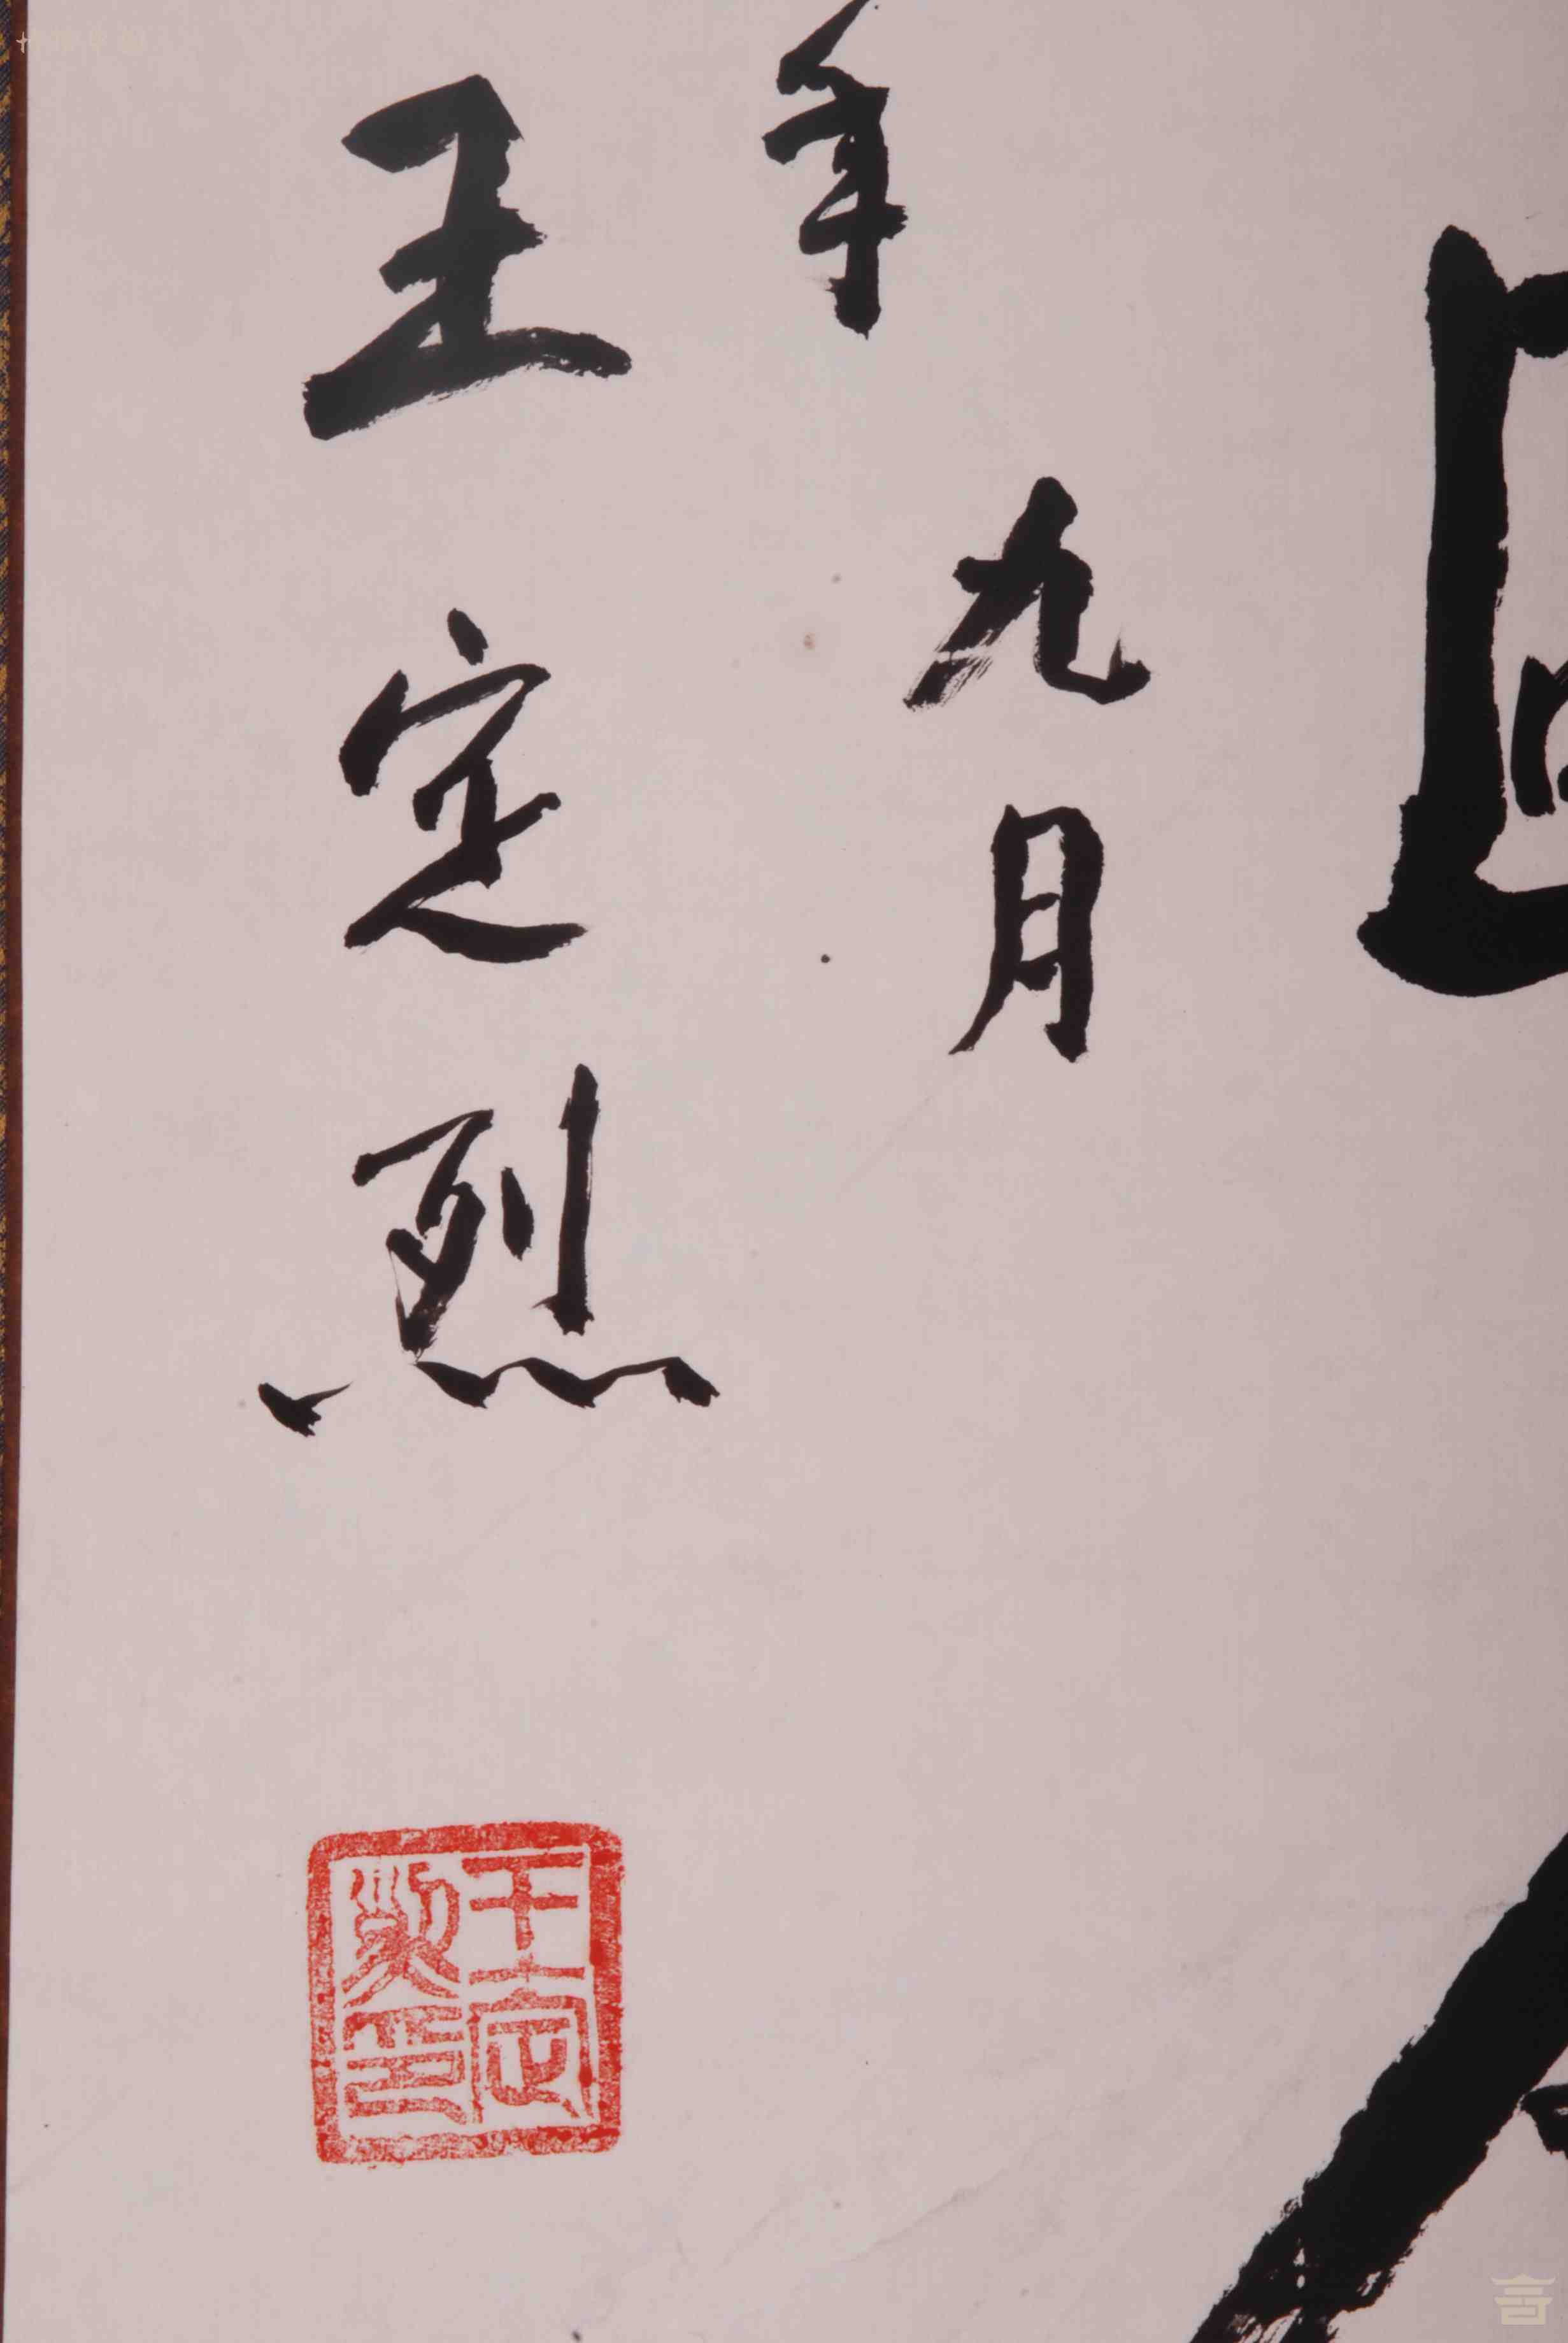 年九月
王定烈
王定烈印